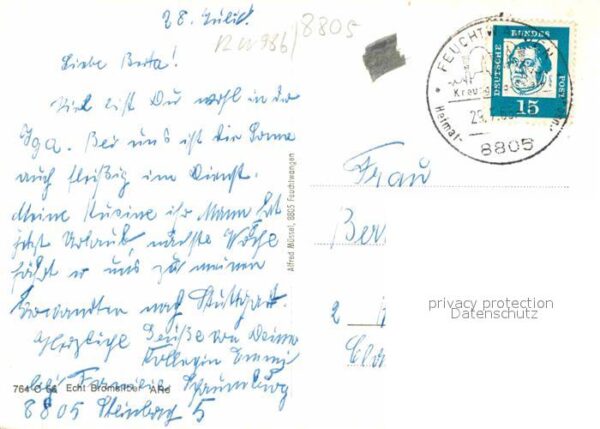 28. Juli
RW986/8805
Liebe Berta!
Viel bist Du wohl in der
Iga. Bei uns ist die Sonne
auch fleißig im Dienst.
Meine Kusine ihr Mann hat
jetzt Urlaub, nächste Woche
fährt er uns zu meinen
Verwandten nach Stuttgart.
Herzliche Grüße von Deiner
Kollegin Emmi
bei Familie
8805 Steinbach 5
764 C 64 Echt Bromsilber
Alfred Münzel, 8805 Feuchtwangen
FEUCHTW
Kreuzg
Heimat-
8805
DEUTSCHE BUNDES POST
15
Frau
Ber
2
Cla
privacy protection
Datenschutz